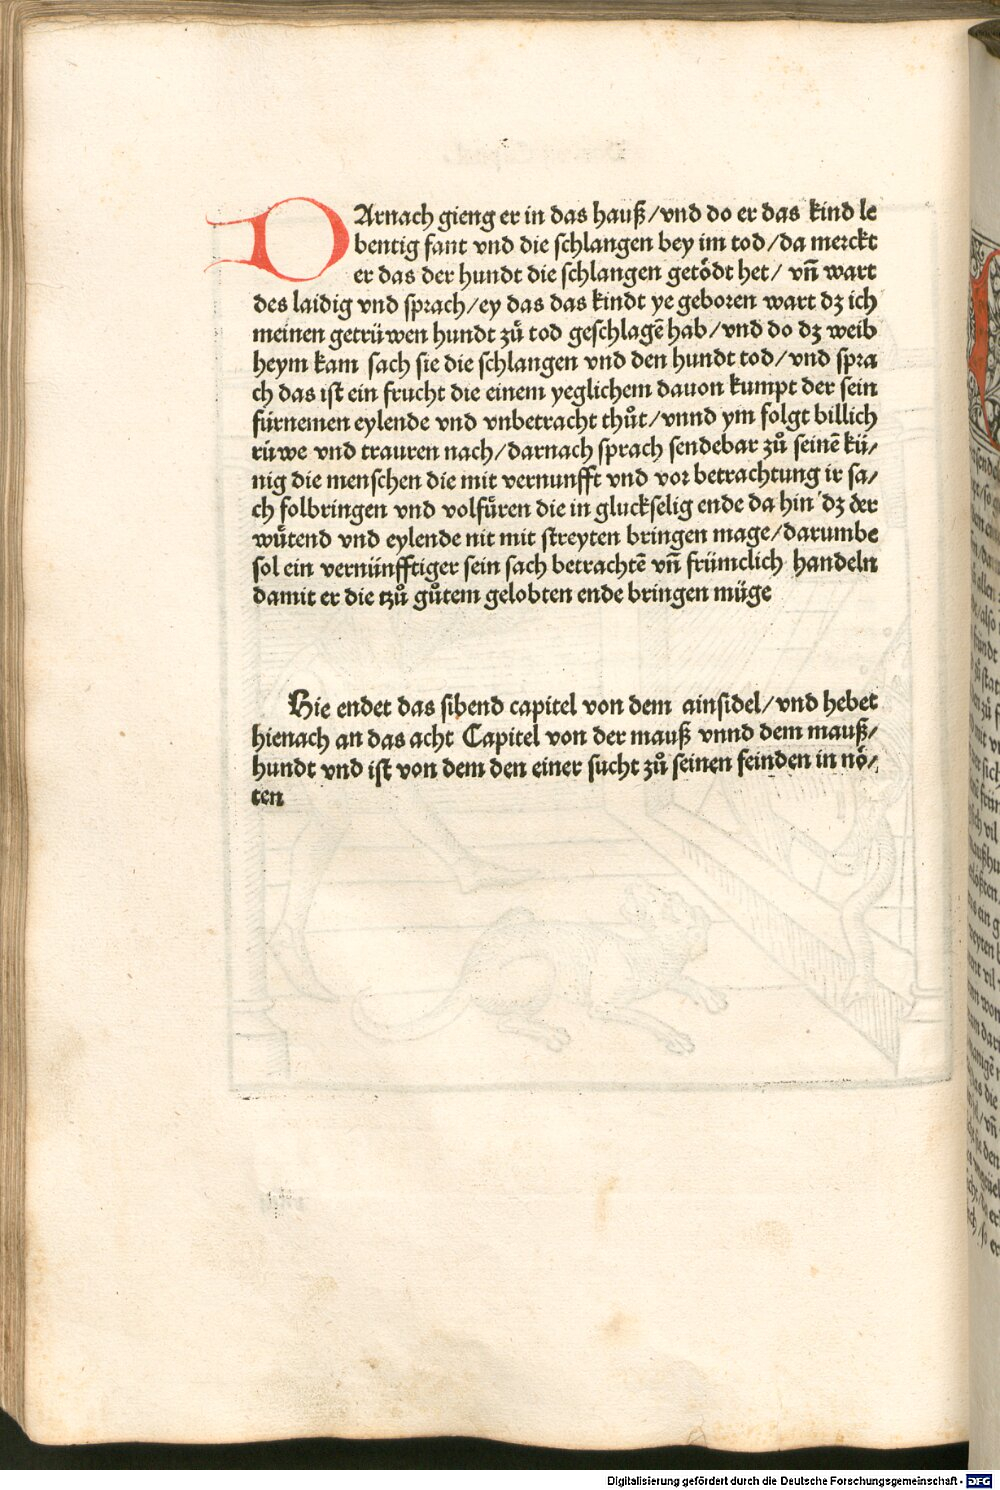 DArnach gieng er in das hauß/vnd do er das kind le
bentig fant vnd die schlangen bey im tod/da merckt
er das der hundt die schlangen getödt het/ vn̄ wart
des laidig vnd sprach/ey das das kindt ye geboren wart dz ich
meinen getrüwen hundt zů tod geschlagē hab/vnd do dz weib
heym kam sach sie die schlangen vnd den hundt tod/vnd spra
ch das ist ein frucht die einem yeglichem dauon kumpt der sein
fürnemen eylende vnd vnbetracht thůt/vnnd ym folgt billich
rüwe vnd trauren nach/darnach sprach sendebar zů seinē kü/
nig die menschen die mit vernunfft vnd vor betrachtung ir sa/
ch folbringen vnd volfüren die in gluckselig ende da hin dz der
wůtend vnd eylende nit mit streyten bringen mage/darumbe
sol ein vernünfftiger sein sach betrachtē vn̄ frümclich handeln
damit er die tzů gůtem gelobten ende bringen müge
Hie endet das sibend capitel von dem ainsidel/vnd hebet
hienach an das acht Capitel von der mauß vnnd dem mauß/
hundt vnd ist von dem den einer sucht zů seinen feinden in nö/
ten
Digitalisierung gefördert durch die Deutsche Forschungsgemeinschaft - DFG